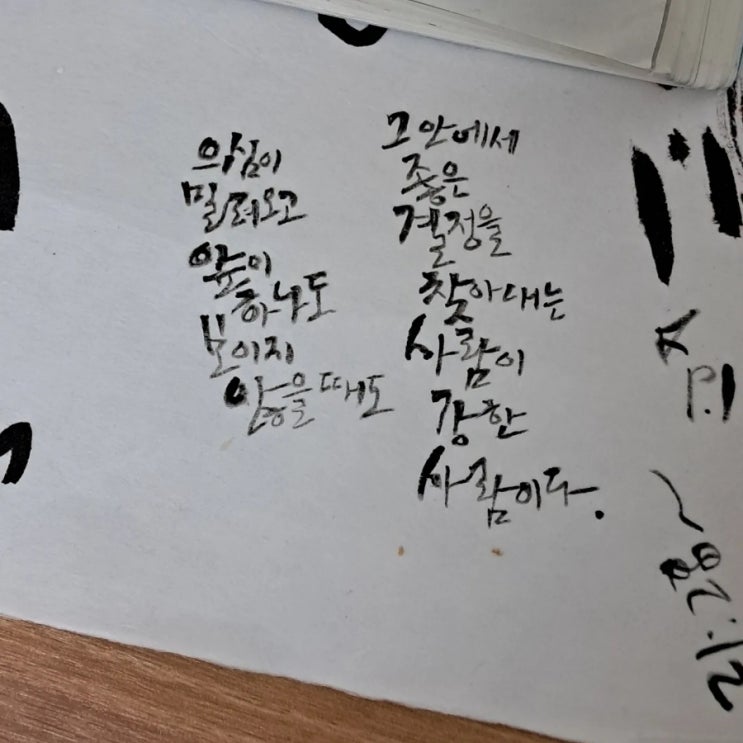 의심이
밀려오고
앞이
하나도
보이지
않을때도
그안에서
좋은
결정을
찾아내는
사람이
강한
사람이다.